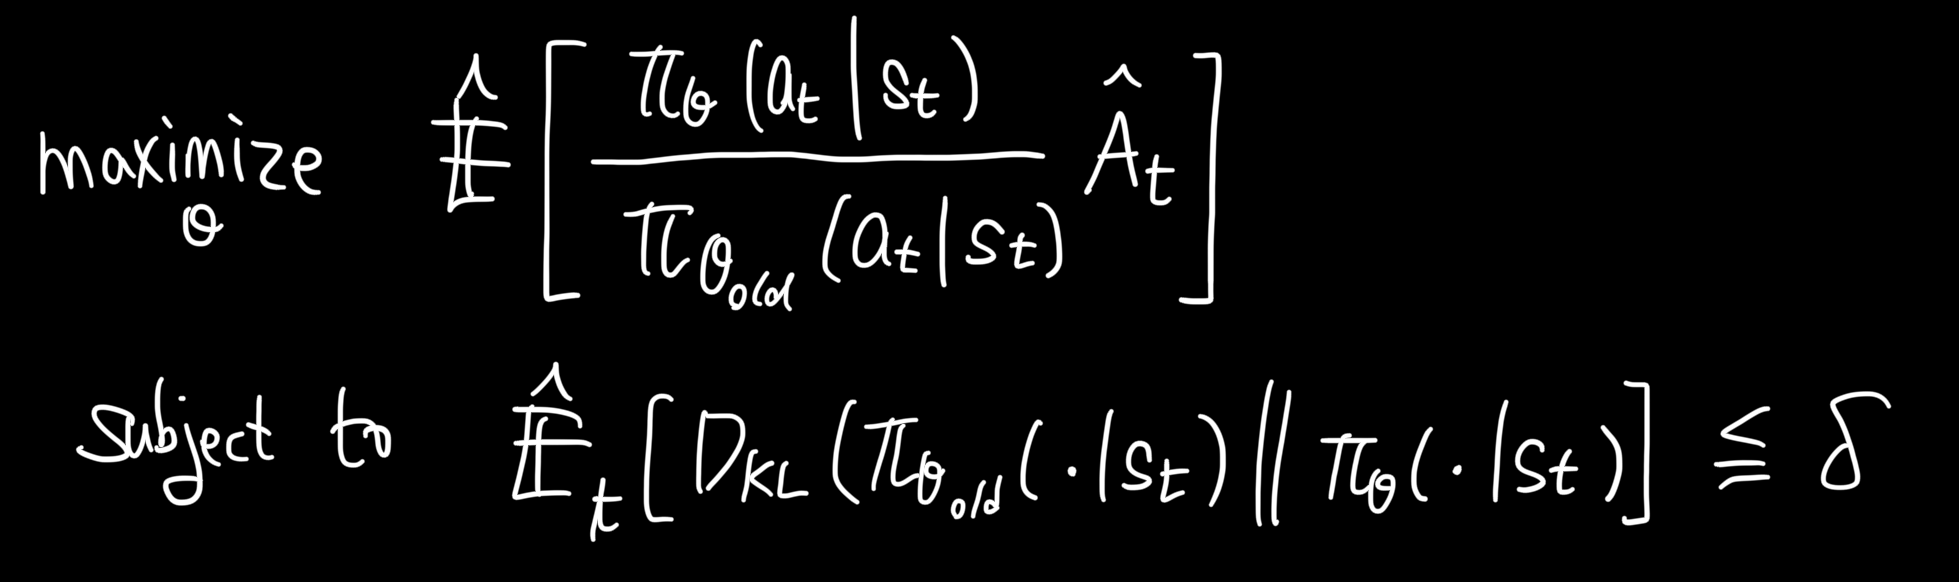 maximize_θ \hat{𝔼} [ \frac{π_θ (a_t | s_t)}{π_{θ_{old}} (a_t | s_t)} \hat{A}_t ]
subject to \hat{𝔼}_t [ D_{KL} (π_{θ_{old}} (· | s_t) ‖ π_θ (· | s_t) ] ≦ δ